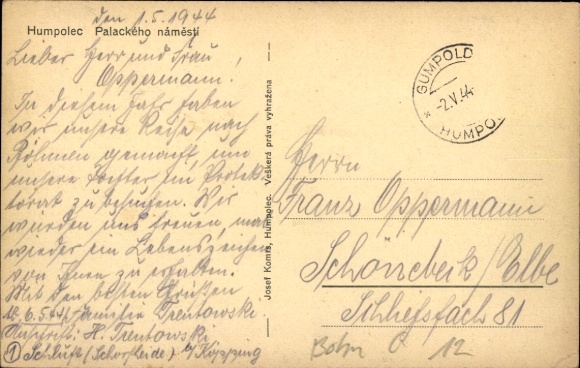 den 1.5.1944
Humpolec Palackého náměstí
Lieber Herr und Frau
Oppermann.
In diesem Jahr haben
wir unsere Reise nach
Böhmen gemacht, um
unsere Tochter im Protek-
torat zu besuchen. Wir
würden uns freuen, mal
wieder ein Lebenszeichen
von Ihnen zu erhalten.
Mit den besten Grüßen
6.5.44 Familie Trentowski
Anschrift: H. Trentowski
1 Schluft (Schorfheide) Köpping
Josef Komrs, Humpolec. Veškerá práva vyhražena
GUMPOLD
-2.V.44
* HUMPO
Herrn
Franz Oppermann
Schönebeck/Elbe
Schließfach 81
Bohm C 12